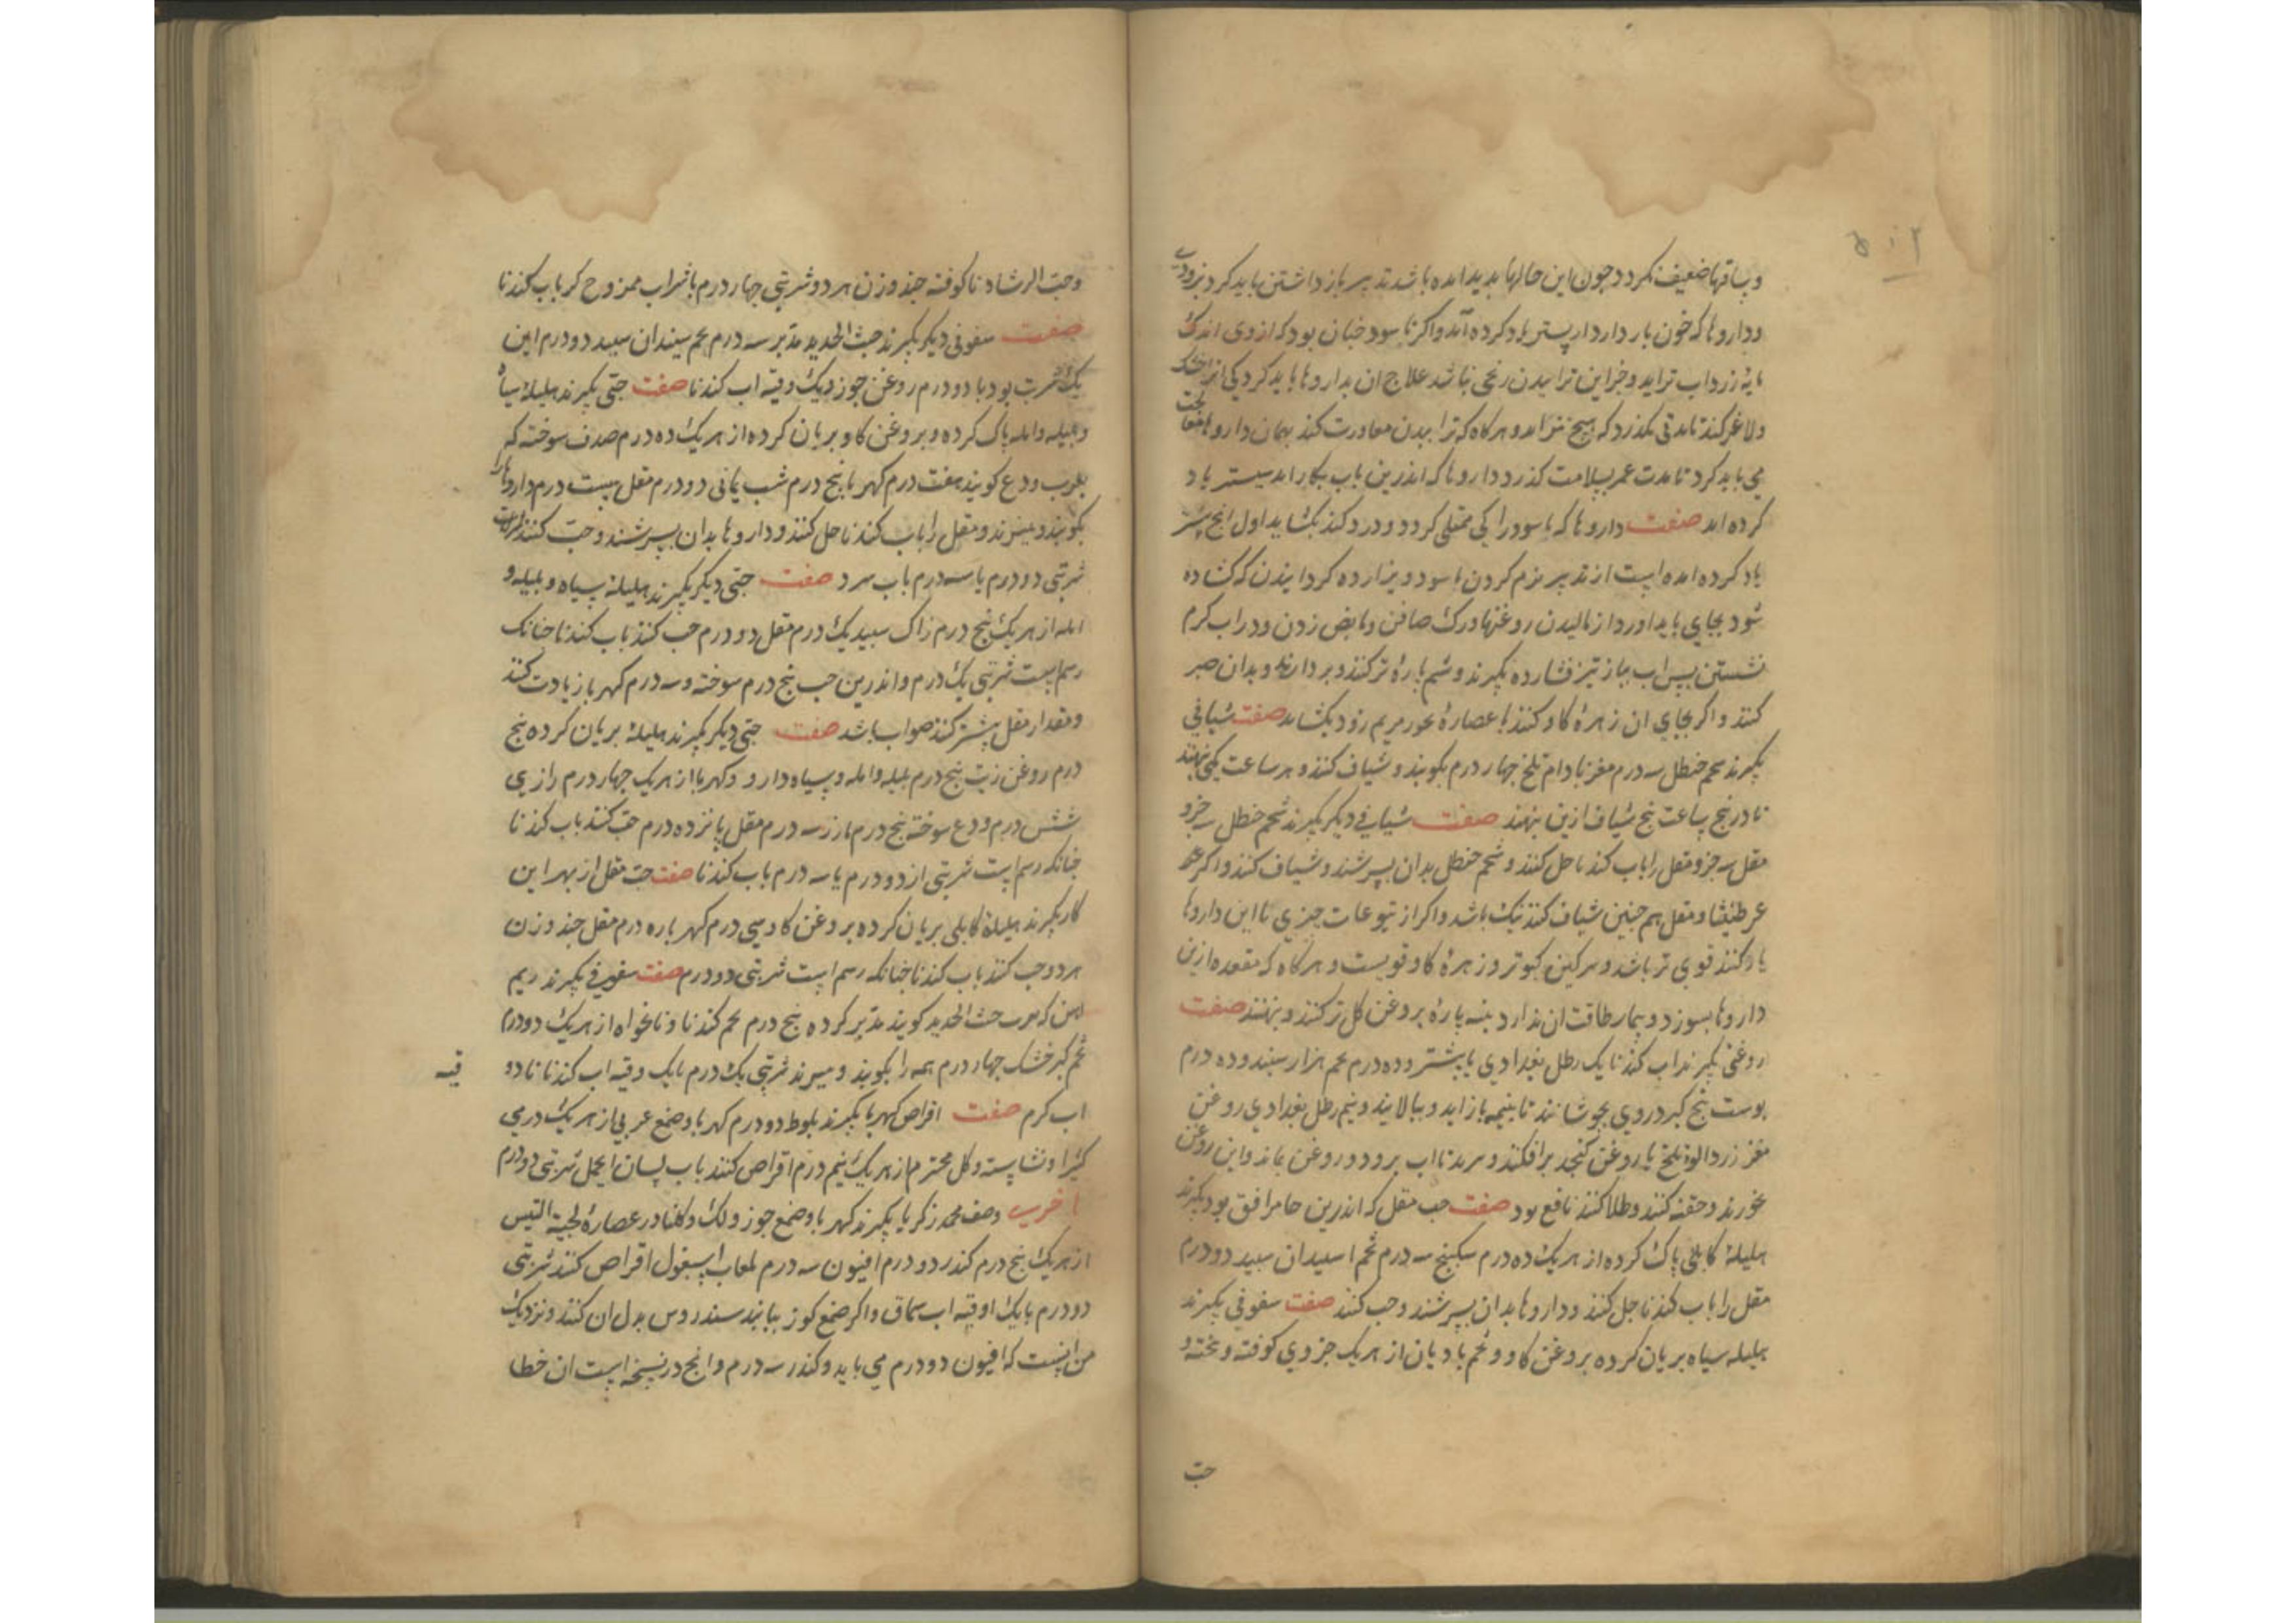 وساقها ضعیف کردد جون این حالها بدید امده باشد تدبیر باز داشتن باید کرد بزودی
وداروها که خون باز دارد از پیشتر یاد کرده آمد واکر ناسود جنان بود که ازوی اندک
مایه زرداب تراید وجز این تراییدن رنجی نباشد علاج ان بداروها باید کرد کی انرا خشک
ولاغر کند تا مدتی بکذرد که هیج نتراید وهرکاه که تراییدن معاودت کند بهمان داروها معالجت
می باید کرد تا مدت عمر بسلامت کذرد داروها که اندرین باب بکار اید بیشتر یاد
کرده اید صفت داروها که ناسور را کی ممتلی کردد ودرد کند بکشاید اول انج بیشتر
یاد کرده امده است از تدبیر نرم کردن ناسور وبیزار ده کردانیدن که کشاده
شود بجای باید اورد از مالیدن روغنها ورک صافن ومابض زدن ودر اب کرم
نشستن بس اب بیاز تیز فشارده بکیرند وبشم بارهٔ تر کنند وبردارند وبدان صبر
کنند واکر بجای ان زهرهٔ کاو کنند یا عصارهٔ بخور مریم زود بکشاید صفت شیافی
بکیرند شحم حنظل سه درم مغز بادام تلخ جهار درم بکوبند وشیاف کنند وهر ساعت یکی بنهند
تا در بنج ساعت بنج شیاف ازین بنهند صفت شیافی دیکر بکیرند شحم حنظل سه جزو
مقل سه جزو مقل را باب کندنا حل کنند وشحم حنظل بدان بسرشند وشیاف کنند واکر
عرطنیثا ومقل هم جنین شیاف کنند نیک باشد واکر از یتوعات جیزی با این داروها
یاد کنند قوی تر باشد وسرکین کبوتر وزهرهٔ کاو قویست وهرکاه که مقعده ازین
داروها بسوزد وبیمار طاقت ان ندارد بنبه بارهٔ بروغن کل تر کنند وبنهند صفت
روغنی بکیرند اب کندنا یک رطل بغدادی یا بیشتر وده درم تخم هزار سبند وده درم
بوست بیخ کبر در وی بجوشانند تا بنیمه باز اید وببالایند ونیم رطل بغدادی روغن
مغز زردالوء تلخ یا روغن کنجد برافکنند وببزند تا اب برود وروغن بماند واین روغن
بخورند وحقنه کنند وطلا کنند نافع بود صفت حب مقل که اندرین حا موافق بود بکیرند
هلیلهٔ کابلی پاک کرده از هریک ده درم سکبینج سه درم تخم اسپندان سبید دو درم
مقل را باب کندنا حل کنند وداروها بدان بسرشند وحب کنند صفت سفوفی بکیرند
هلیله سیاه بریان کرده بروغن کاو وتخم بادیان از هریک جزوی کوفته وبیخته و
حب
وحب الرشاد ناکوفته جند وزن هر دو شربتی جهار درم باشراب ممزوج کر باب کندنا
صفت سفوفی دیکر بکیرند خبث الحدید مدبر سه درم تخم سپندان سبید دو درم این
یک شربت بود با دو درم روغن جوز ویک وقیه اب کندنا صفت حبی بکیرند هلیلهٔ سیاه
وبلیله وامله پاک کرده وبروغن کاو بریان کرده از هریک ده درم صدف سوخته که
بعرب ودع کویند هفت درم کهربا بنج درم شب یمانی دو درم مقل بیست درم داروها را
بکوبند وببیزند ومقل را باب کندنا حل کنند وداروها بدان بسرشند وحب کنند
شربتی دو درم یا سه درم باب سرد صفت حبی دیکر بکیرند هلیلهٔ سیاه وبلیله و
امله از هریک بنج درم زاک سبید یک درم مقل دو درم حب کنند باب کندنا جنانک
رسم است شربتی یک درم واندرین حب بنج درم سوخته وسه درم کهربا زیادت کنند
ومقدار مقل بیشتر کنند صواب باشد صفت حبی دیکر بکیرند هلیلهٔ بریان کرده بنج
درم روغن زیت بنج درم بلیله وامله وسیاه دارو وکهربا از هریک جهار درم رازی
شش درم ودع سوخته بنج درم ارزز سه درم مقل پانزده درم حب کنند باب کندنا
جنانکه رسم است شربتی از دو درم یا سه درم باب کندنا صفت حب مقل از بهر این
کار بکیرند هلیلهٔ کابلی بریان کرده بروغن کاو سی درم کهربا ده درم مقل جند وزن
هر دو حب کنند باب کندنا جنانکه رسم است شربتی دو درم صفت سفوفی بکیرند ریم
اهن که بعرب خبث الحدید کویند مدبر کرده بنج درم تخم کندنا ونانخواه از هریک دو درم
تخم کبر خشک جهار درم همه را بکوبند وببیزند شربتی یک درم بایک وقیه اب کندنا تا دو
قیه
اب کرم صفت اقراص کهربا بکیرند بلوط دو درم کهربا وصمغ عربی از هریک درمی
کثیرا ونشاسته وکل مختوم از هریک نیم درم اقراص کنند باب لسان الحمل شربتی دو درم
اخری وصف محمد زکریا بکیرند کهربا وصمغ جوز ولک وکلنار وعصارهٔ لحیة التیس
از هریک بنج درم کندر دو درم افیون سه درم بلعاب اسبغول اقراص کنند شربتی
دو درم بایک اوقیه اب سماق واکر صمغ کوز نیابند سندروس بدل ان کنند ونزدیک
من انست که افیون دو درم می باید وکندر سه درم وانج در نسخه است ان خطا